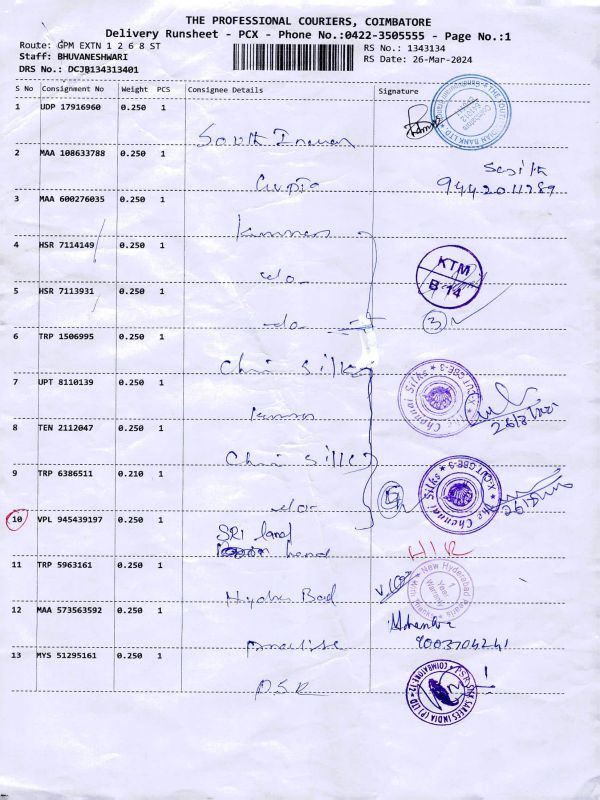 THE PROFESSIONAL COURIERS, COIMBATORE
Delivery Runsheet - PCX - Phone No.:0422-3505555 - Page No.:1
Route: GPM EXTN 1 2 6 8 ST
RS No.: 1343134
Staff: BHUVANESHWARI
RS Date: 26-Mar-2024
DRS No.: DCJB134313401
S No Consignment No Weight PCS Consignee Details Signature
1 UDP 17916960 0.250 1
South
2 MAA 108633788 0.250 1
Gupta
9442011289
3 MAA 600276035 0.250 1
4 HSR 7114149 0.250 1
do
KTM
B-14
5 HSR 7113931 0.250 1
do
3
6 TRP 1506995 0.250 1
Silks
The Chennai Silks * X-CUT CBE-3 *
7 UPT 8110139 0.250 1
8 TEN 2112047 0.250 1
The Chennai Silks * X-CUT CBE-3 *
9 TRP 6386511 0.210 1
do
5
10 VPL 945439197 0.250 1
SRI
hand
HIR
11 TRP 5963161 0.250 1
Hyder Bad
New Hyderabad Pearls
1 Year Warranty
12 MAA 573563592 0.250 1
9003704241
13 MYS 51295161 0.250 1
P.S.R
SAREES INDIA (P) LTD
COIMBATORE-12